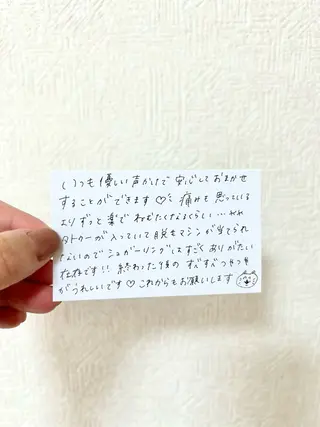 いつも優しい声かけで安心しておまかせ
することができます♡ 痛みも思っている
よりずっと楽でねむたくなるくらい…ㅠㅠ
タトゥーが入っていて脱毛マシンが当てられ
ないのでシュガーリングはすごくありがたい
存在です!! 終わった後のすべすべつやつや
がうれしいです♡ これからもお願いします